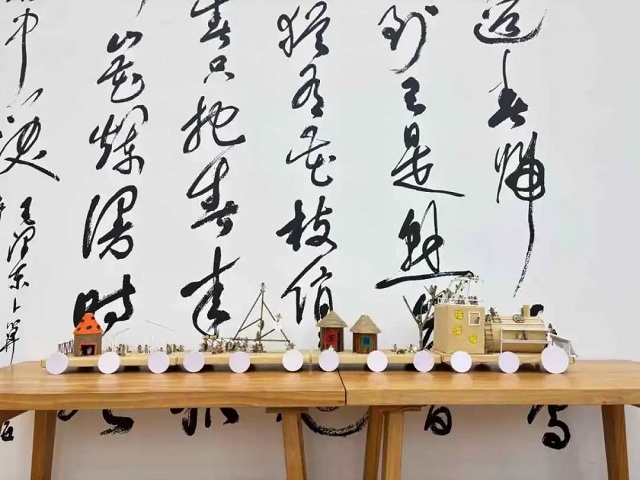 送春归
到已是悬
犹有花枝俏
春只把春来
山花烂漫时
中笑
毛泽东卜算